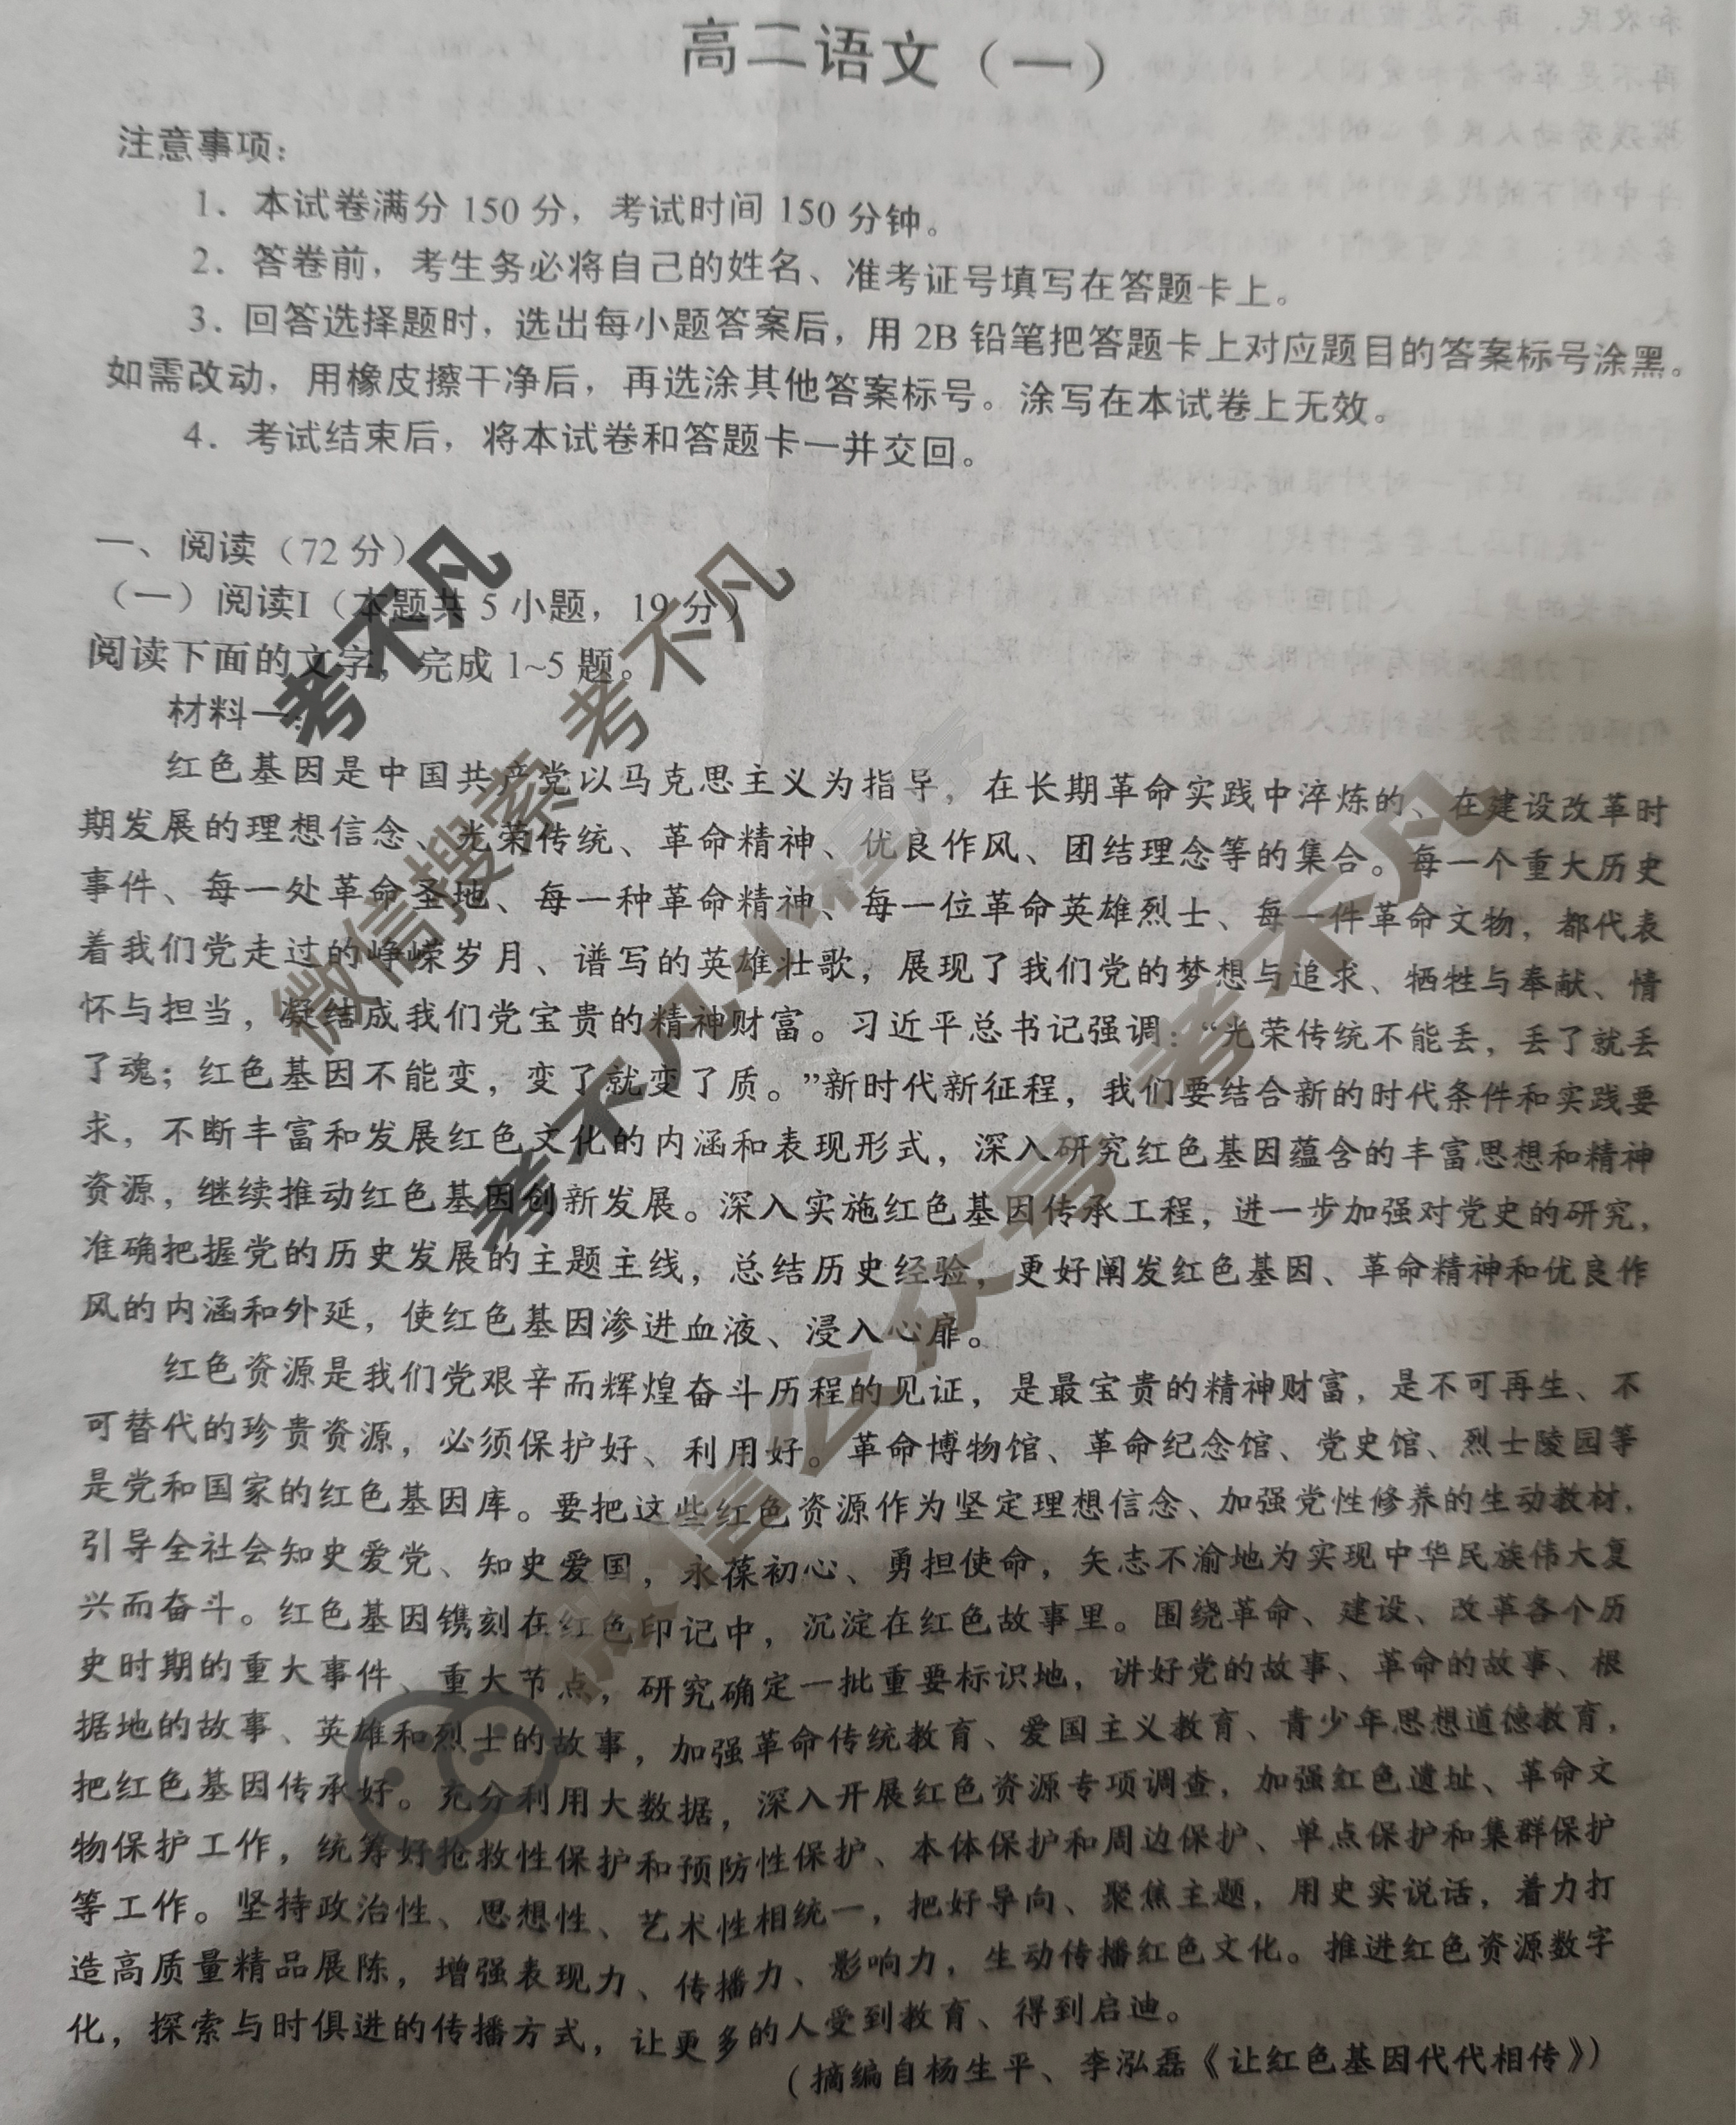 高二语文（一）
注意事项：
1．本试卷满分 150 分，考试时间 150 分钟。
2．答卷前，考生务必将自己的姓名、准考证号填写在答题卡上。
3．回答选择题时，选出每小题答案后，用 2B 铅笔把答题卡上对应题目的答案标号涂黑。
如需改动，用橡皮擦干净后，再选涂其他答案标号。涂写在本试卷上无效。
4．考试结束后，将本试卷和答题卡一并交回。
一、阅读（72 分）
（一）阅读I（本题共 5 小题，19 分）
阅读下面的文字，完成 1~5 题。
材料一：
红色基因是中国共产党以马克思主义为指导，在长期革命实践中淬炼的、在建设改革时
期发展的理想信念、光荣传统、革命精神、优良作风、团结理念等的集合。每一个重大历史
事件、每一处革命圣地、每一种革命精神、每一位革命英雄烈士、每一件革命文物，都代表
着我们党走过的峥嵘岁月、谱写的英雄壮歌，展现了我们党的梦想与追求、牺牲与奉献、情
怀与担当，凝结成我们党宝贵的精神财富。习近平总书记强调：“光荣传统不能丢，丢了就丢
了魂；红色基因不能变，变了就变了质。”新时代新征程，我们要结合新的时代条件和实践要
求，不断丰富和发展红色文化的内涵和表现形式，深入研究红色基因蕴含的丰富思想和精神
资源，继续推动红色基因创新发展。深入实施红色基因传承工程，进一步加强对党史的研究，
准确把握党的历史发展的主题主线，总结历史经验，更好阐发红色基因、革命精神和优良作
风的内涵和外延，使红色基因渗进血液、浸入心扉。
红色资源是我们党艰辛而辉煌奋斗历程的见证，是最宝贵的精神财富，是不可再生、不
可替代的珍贵资源，必须保护好、利用好。革命博物馆、革命纪念馆、党史馆、烈士陵园等
是党和国家的红色基因库。要把这些红色资源作为坚定理想信念、加强党性修养的生动教材，
引导全社会知史爱党、知史爱国，永葆初心、勇担使命，矢志不渝地为实现中华民族伟大复
兴而奋斗。红色基因镌刻在红色印记中，沉淀在红色故事里。围绕革命、建设、改革各个历
史时期的重大事件、重大节点，研究确定一批重要标识地，讲好党的故事、革命的故事、根
据地的故事、英雄和烈士的故事，加强革命传统教育、爱国主义教育、青少年思想道德教育，
把红色基因传承好。充分利用大数据，深入开展红色资源专项调查，加强红色遗址、革命文
物保护工作，统筹好抢救性保护和预防性保护、本体保护和周边保护、单点保护和集群保护
等工作。坚持政治性、思想性、艺术性相统一，把好导向、聚焦主题，用史实说话，着力打
造高质量精品展陈，增强表现力、传播力、影响力，生动传播红色文化。推进红色资源数字
化，探索与时俱进的传播方式，让更多的人受到教育、得到启迪。
（摘编自杨生平、李泓磊《让红色基因代代相传》）
考不凡
微信搜索考不凡
考不凡小程序
微信公众号 考不凡